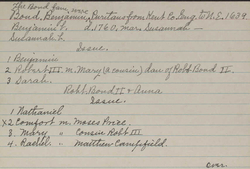 The Bond fam. were
Bond, Benjamin, Puritans from Kent Co. Eng. to N.E. 1634.
Benjamin I. d. 1760, mars Susannah —
Susannah L.
Issue.
1 Benjamin
2 Robert III m. Mary (a cousin) dau of Robt Bond II.
3 Sarah.
Robt. Bond II & Anna
Issue.
1 Nathaniel
X2 Comfort m. Moses Price.
3 Mary " Cousin Robt III
4 Rachel " Matthew Campfield.
over